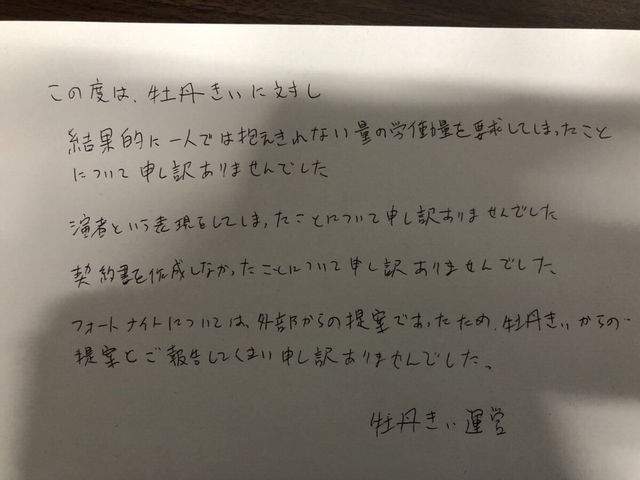 この度は、牡丹きぃに対し
結果的に一人では抱えきれない量の労働量を要求してしまったこと
について申し訳ありませんでした
演者という表現をしてしまったことについて申し訳ありませんでした
契約書を作成しなかったことについて申し訳ありませんでした。
フォートナイトについては、外部からの提案であったため、牡丹きぃからの
提案とご報告してしまい申し訳ありませんでした。
牡丹きぃ運営